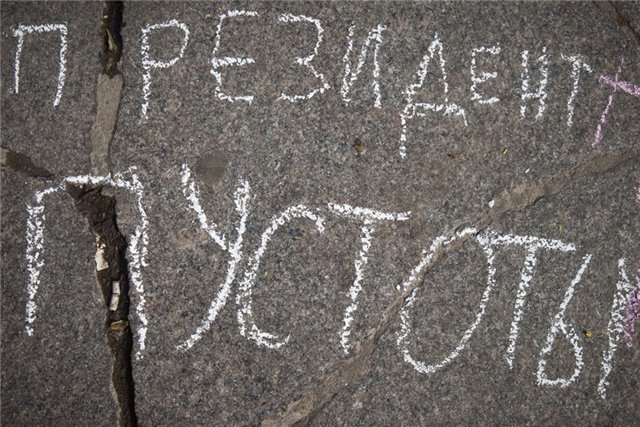 ПРЕЗИДЕНТ
ПУСТОТЫ